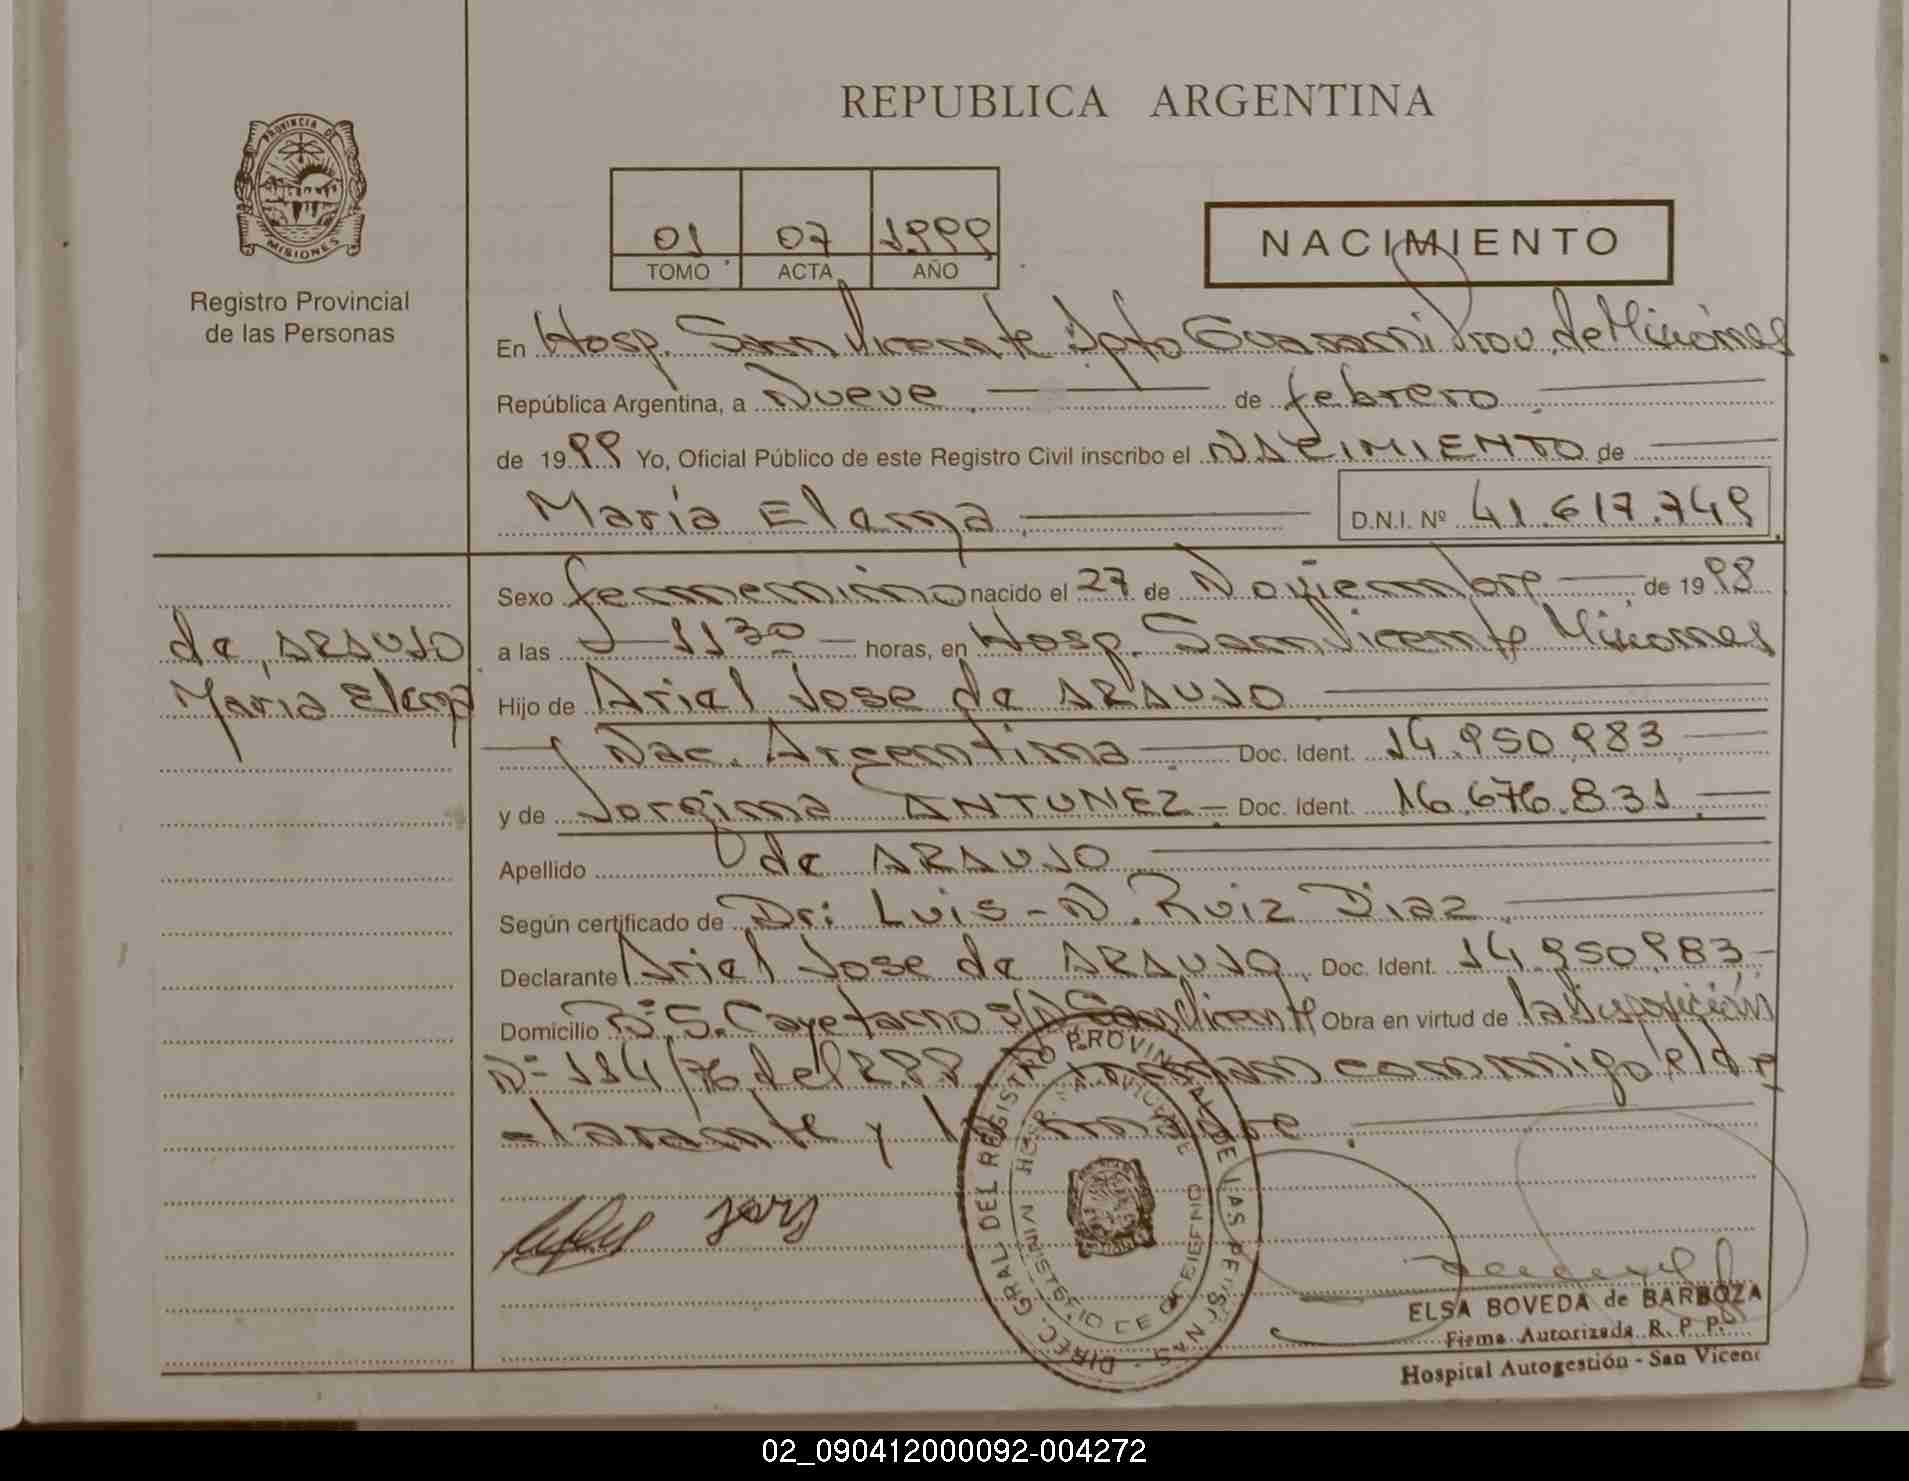 REPUBLICA ARGENTINA
PROVINCIA DE
MISIONES
Registro Provincial
de las Personas
01 07 1999
TOMO ACTA AÑO
NACIMIENTO
En Hosp. San Vicente Dpto Guaraní Prov. de Misiones
República Argentina, a Nueve de febrero
de 1999 Yo, Oficial Público de este Registro Civil inscribo el NACIMIENTO de
María Elena D.N.I. Nº 41.617.749
Sexo femenino nacido el 27 de Noviembre de 1998
a las 11 30 horas, en Hosp. San Vicente Misiones
de ARAUJO
María Elena
Hijo de Ariel Jose de ARAUJO
Nac. Argentina Doc. Ident. 14.950.983
y de Jorgina ANTUNEZ Doc. Ident. 16.676.831
Apellido de ARAUJO
Según certificado de Dr: Luis - N. Ruiz Diaz
Declarante Ariel Jose de ARAUJO Doc. Ident. 14.950.983
Domicilio Bº S. Cayetano S/N San Vicente Obra en virtud de la Disposición
Nº 114/76 del R.P.P. firman conmigo el de
clarante y la madre.
DIREC. GRAL DEL REGISTRO PROVINCIAL DE LAS PERS.
HOSP. SAN VICENTE
MINISTERIO DE GOBIERNO
ELSA BOVEDA de BARBOZA
Firma Autorizada R. P. P.
Hospital Autogestión - San Vicent
02_090412000092-004272